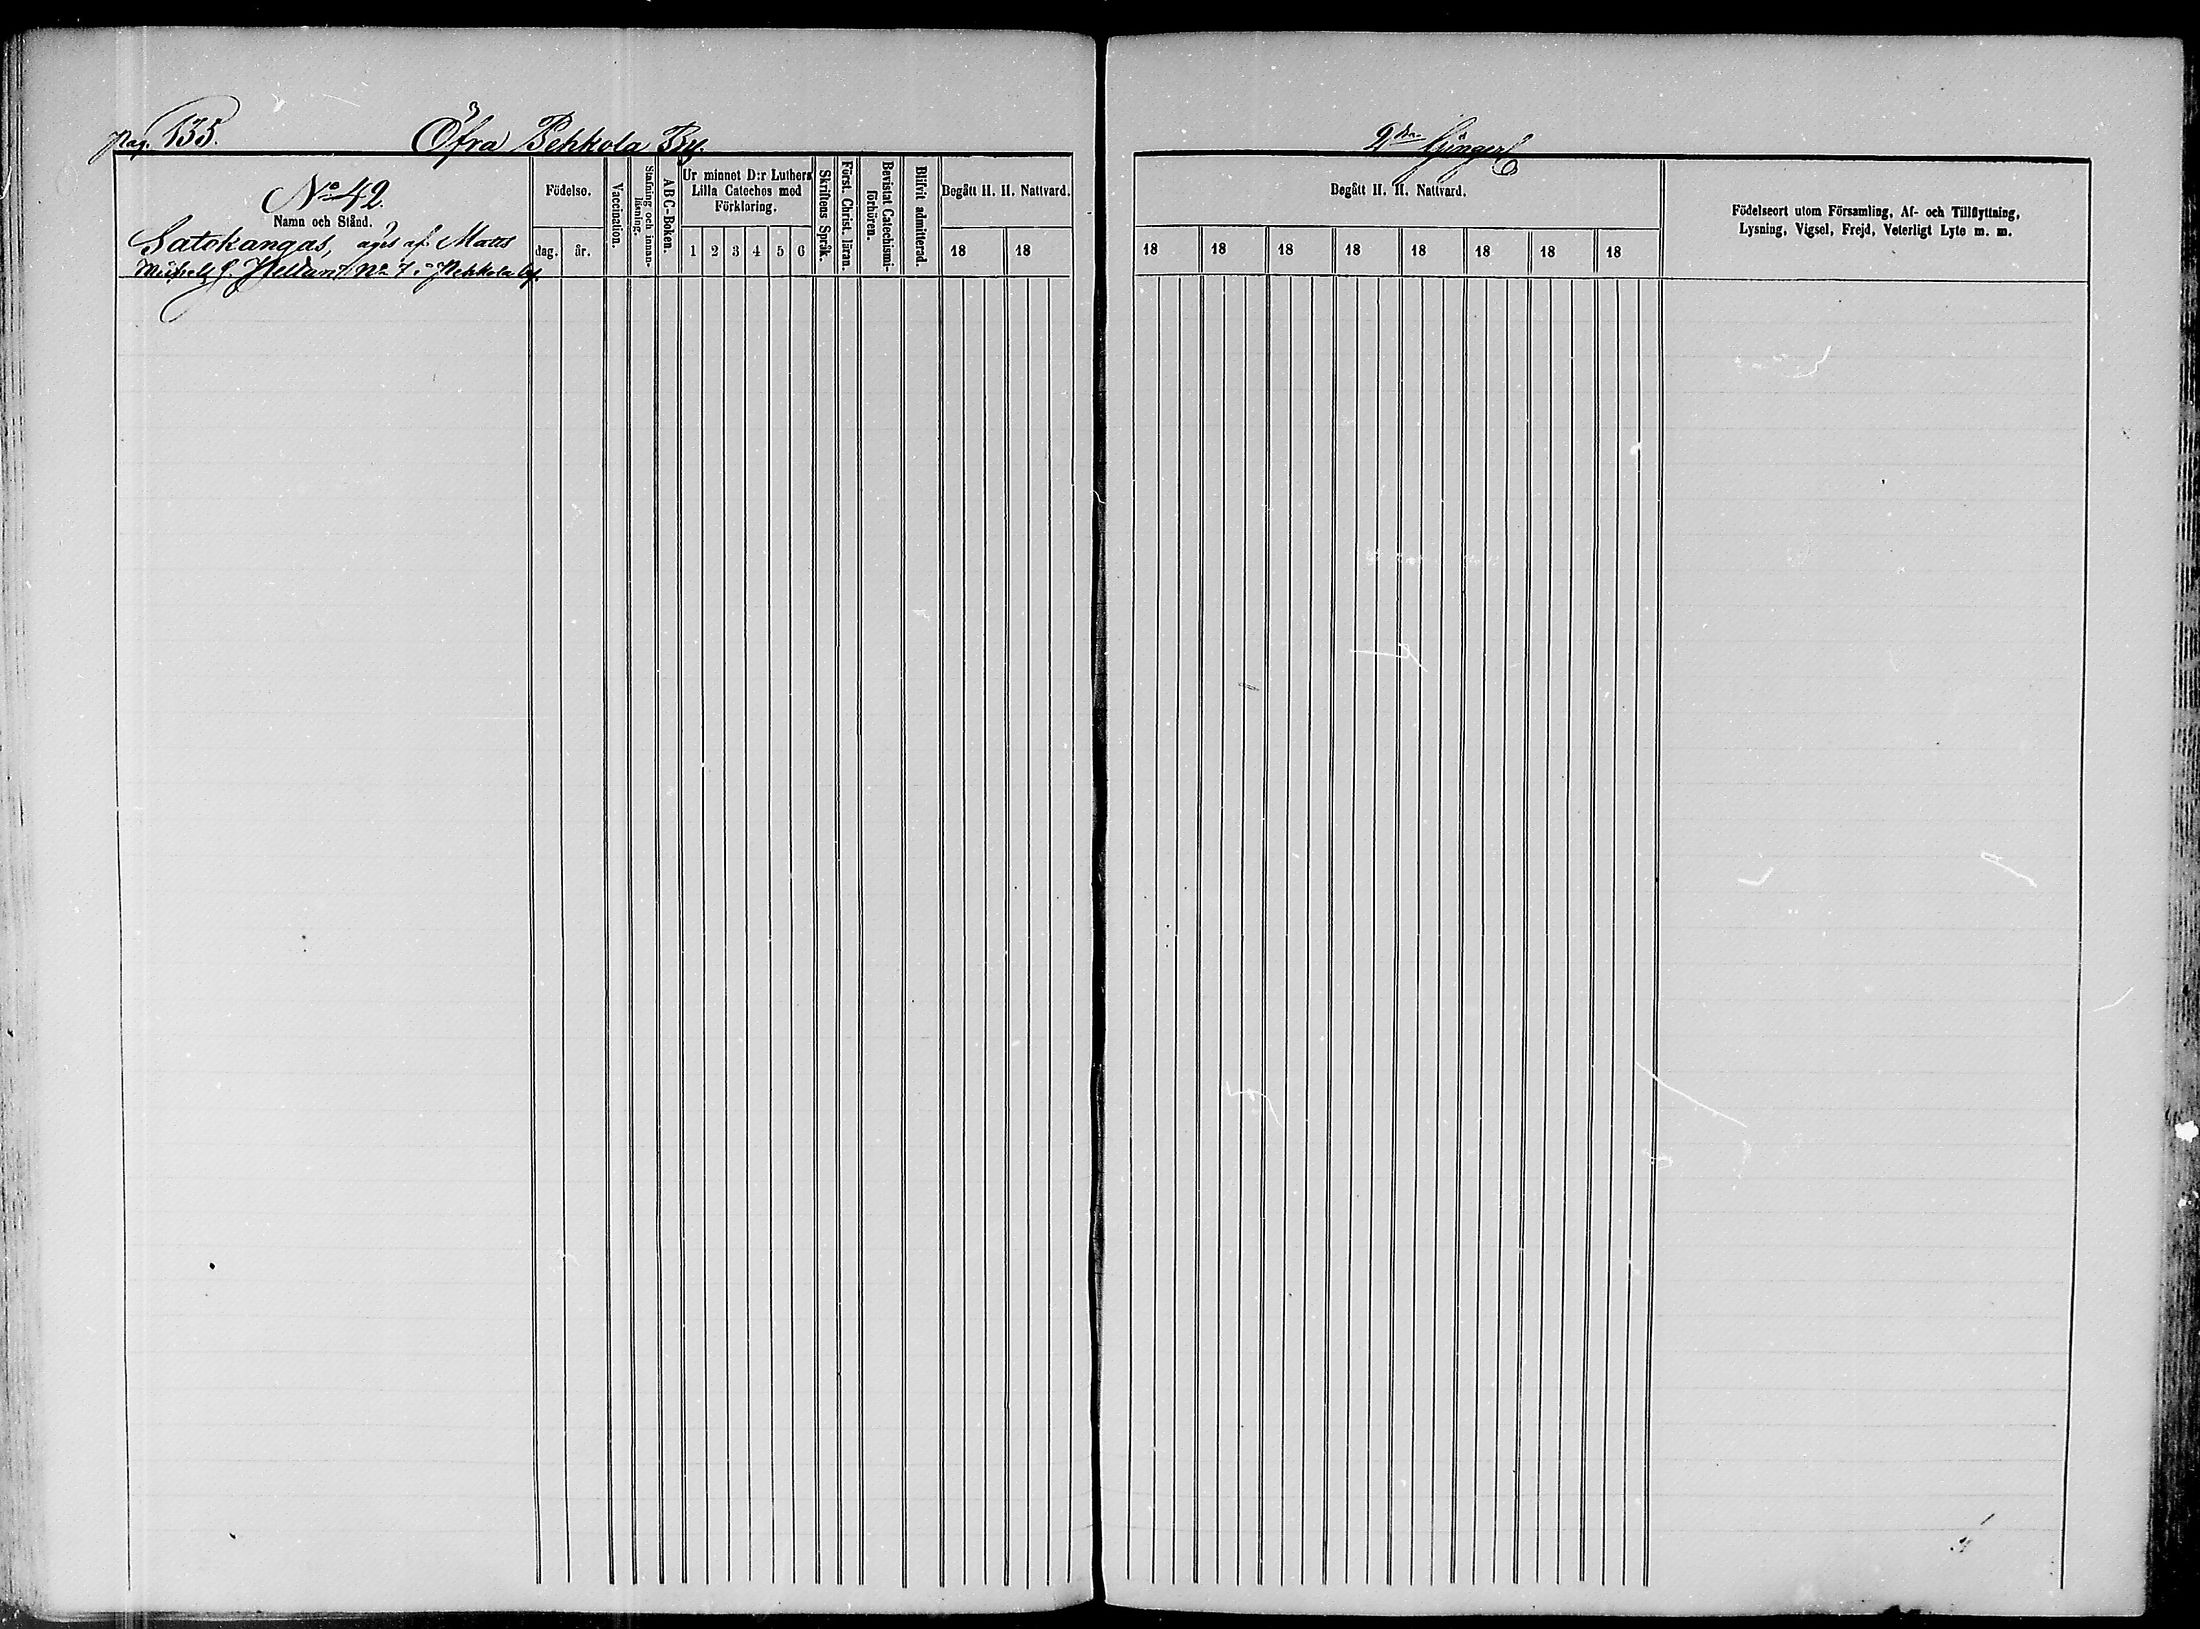 pag. 135.
Öfra Pehkola By.
No 42.
Namn och Stånd.
Satokangas, äges af Matts
Michels s. Pelland No 7 i Pehkola by.
Födelse.
dag. år.
Vaccination.
Stafning och innanläsning.
ABC-Boken.
Ur minnet D:r Luthers
Lilla Cateches med
Förklaring.
1 2 3 4 5 6
Skriftens Språk.
Först. Christ. läran.
Bevistat Catechismi-
förhören.
Blifvit admitterad.
Begått H. H. Nattvard.
18 18
2dra
Begått H. H. Nattvard.
18 18 18 18 18 18 18 18
Födelseort utom Församling, Af- och Tillflyttning,
Lysning, Vigsel, Frejd, Veterligt Lyte m. m.